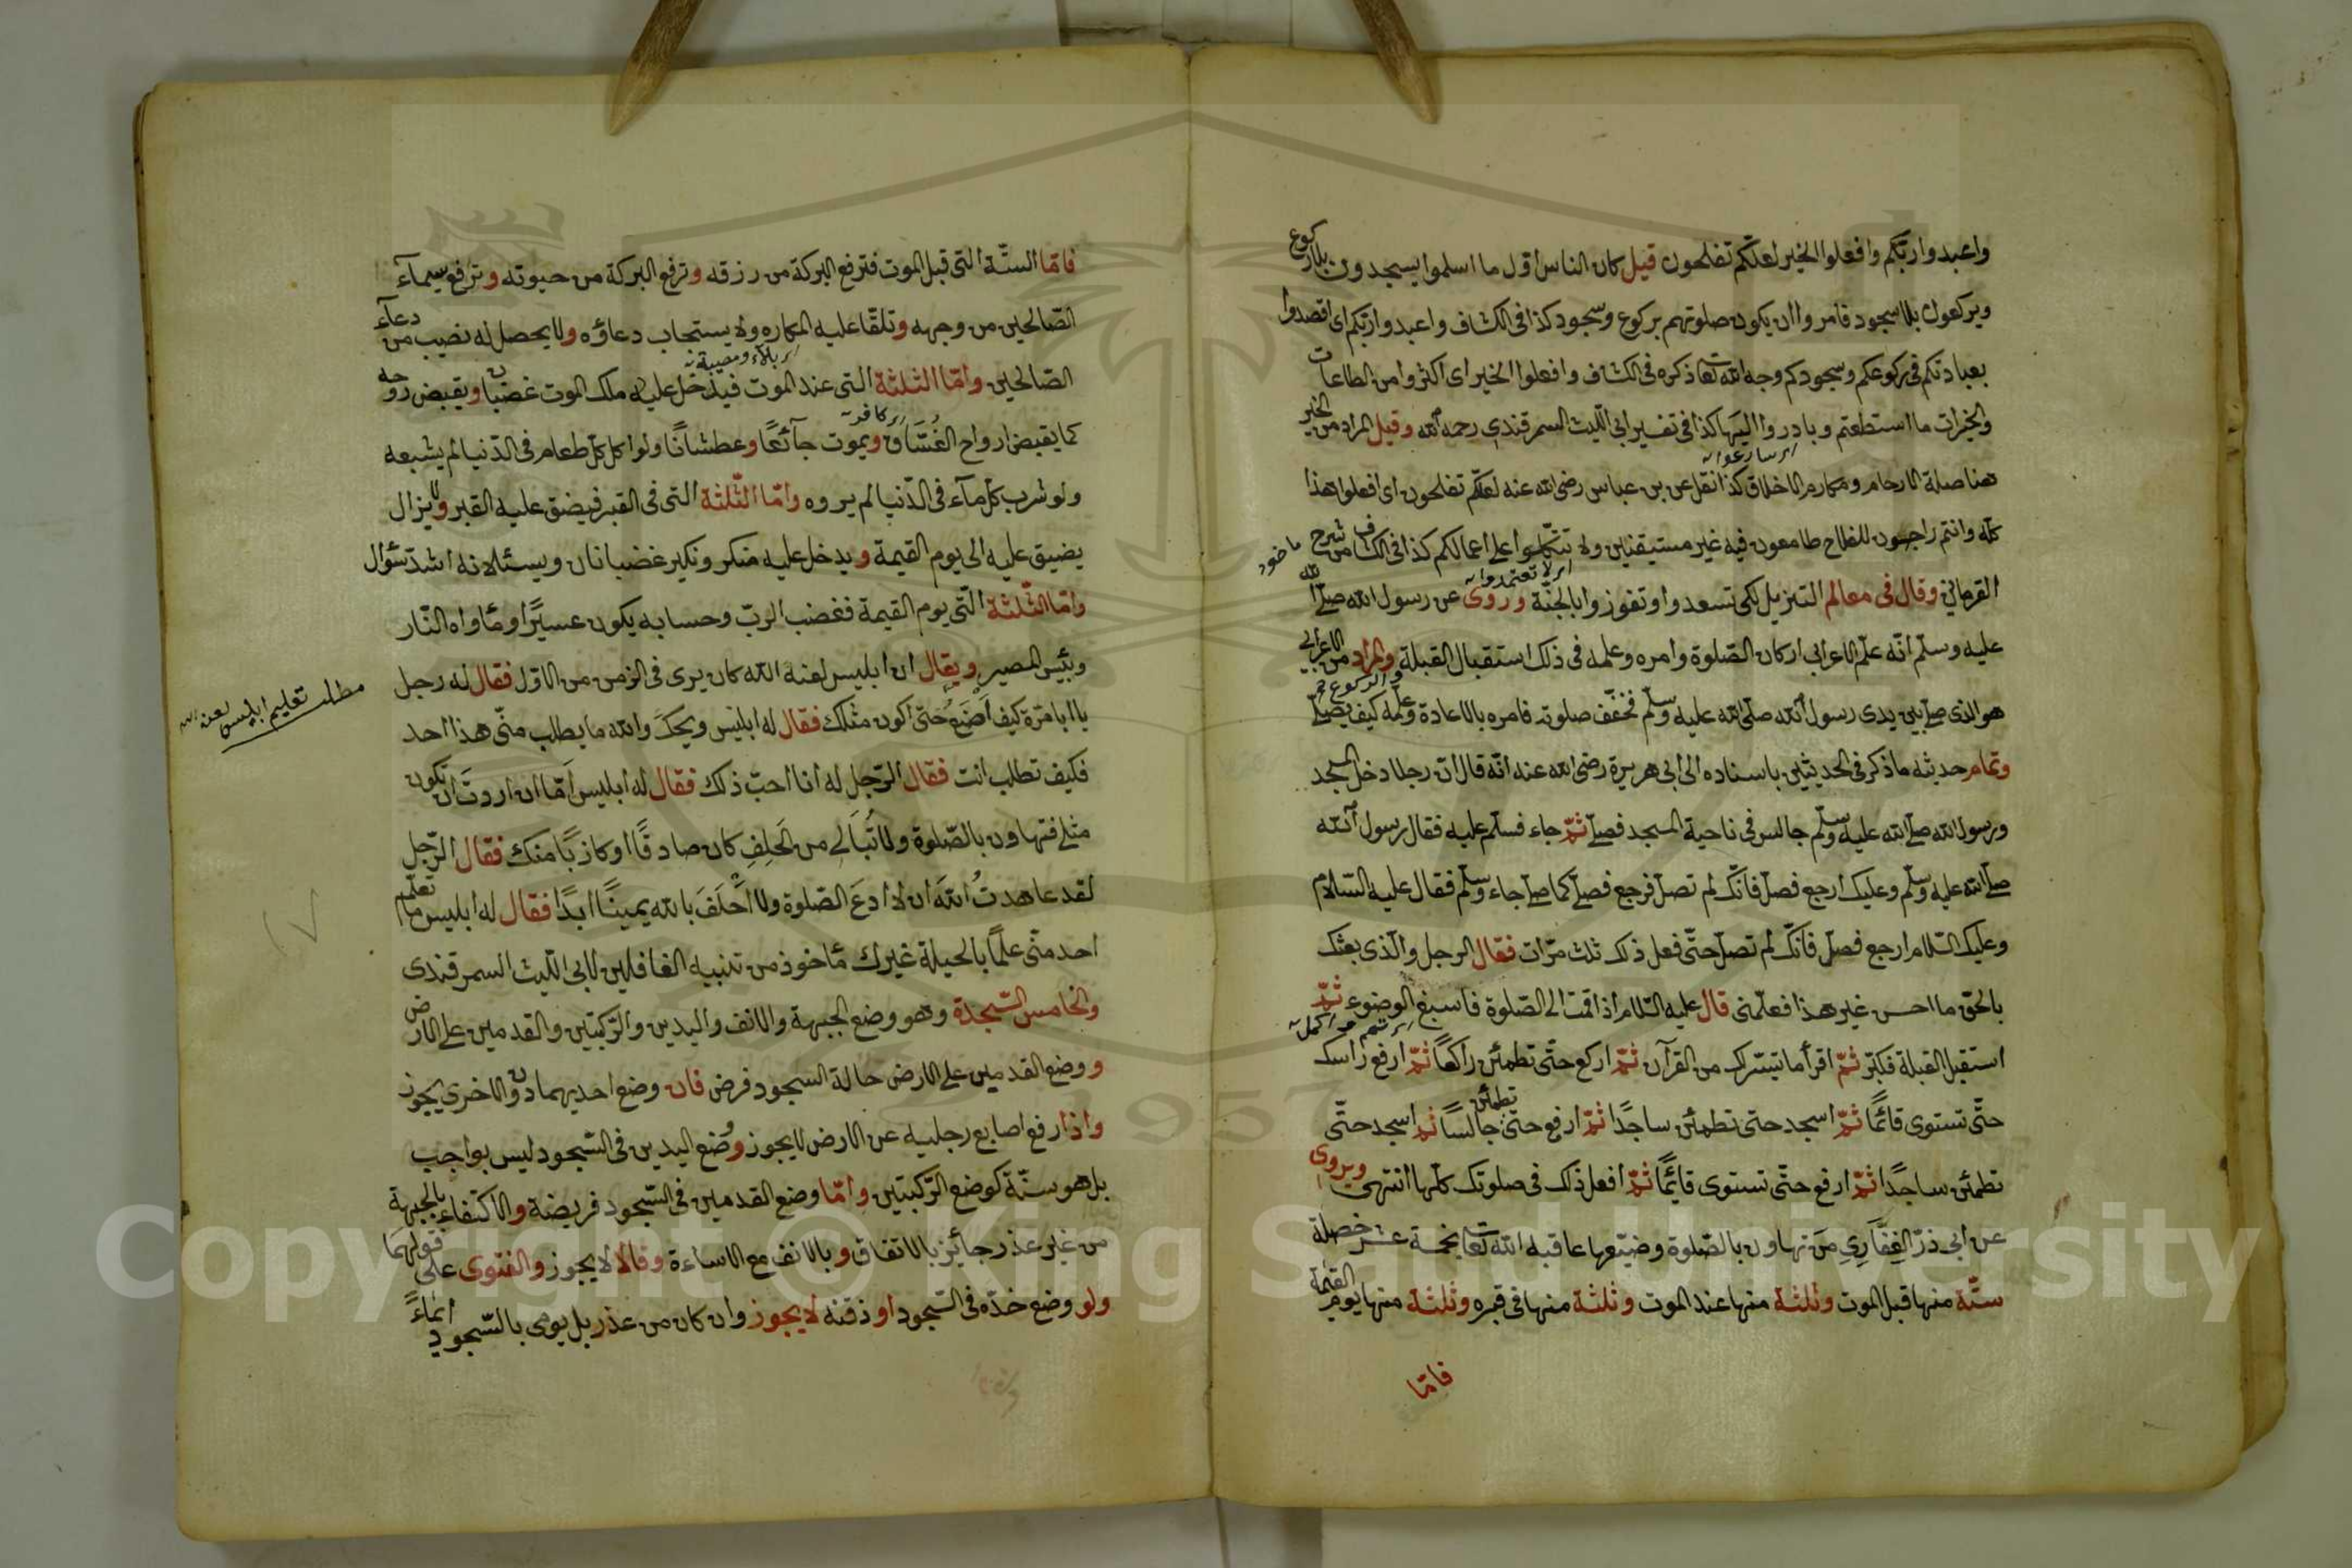 واعبدوا ربّكم وافعلوا الخير لعلّكم تفلحون قيل كان الناس اوّل ما اسلموا يسجدون بلا ركوع
ويركعون بلا سجود فامروا ان يكون صلوتهم بركوع وسجود كذا فى الكشاف واعبدوا ربّكم اى اقصدوا
بعبادتكم فى ركوعكم وسجودكم وجه الله تعا ذكره فى الكشاف وافعلوا الخير اى اكثروا من الطاعات
والخيرات ما استطعتم وبادروا اليها كذا فى تفسير ابى اللّيث السمرقندى رحمه الله وقيل المراد من الخير
اى سارعوا
هنا صلة الارحام ومكارم الاخلاق كذا نقل عن بن عباس رضى الله عنه لعلّكم تفلحون اى افعلوا هذا
كلّه وانتم راجعون للفلاح طامعون فيه غير مستيقنين ولا تتّكلوا على اعمالكم كذا فى الكشاف من شرح
اى لا تعتمدوا
القرمانى وقال فى معالم التنزيل لكى تسعدوا وتفوزوا بالجنّة وروى عن رسول الله صلّى الله
عليه وسلّم انّه علّم الاعرابى اركان الصّلوة وامره وعلمه فى ذلك استقبال القبلة والمراد من الاعرابى
والركوع
هو الذى صلّى بين يدى رسول الله صلّى الله عليه وسلّم فخفّف صلوته فامره بالاعادة وعلّمه كيف يصلّى
وتمام حديثه ما ذكر فى الحديثين باسناده الى ابى هريرة رضى الله عنه انّه قال انّ رجلا دخل المسجد
ورسول الله صلى الله عليه وسلّم جالس فى ناحية المسجد فصلّى ثمّ جاء فسلّم عليه فقال رسول الله
صلّى الله عليه وسلّم وعليك ارجع فصلّ فانّك لم تصلّ فرجع فصلّى كما صلّى جاء وسلّم فقال عليه السّلام
وعليك السّلام ارجع فصلّ فانّك لم تصلّ حتّى فعل ذلك ثلث مرّات فقال الرجل والّذى بعثك
بالحقّ ما احسن غير هذا فعلّمنى قال عليه السّلام اذا قمت الى الصّلوة فاسبغ الوضوء ثمّ
استقبل القبلة فكبّر ثمّ اقرأ ما تيسّر لك من القرآن ثمّ اركع حتّى تطمئن راكعاً ثمّ ارفع رأسك
حتّى تستوى قائمًا ثمّ اسجد حتى تطمئن ساجدًا ثمّ ارفع حتّى تطمئن جالسًا ثمّ اسجد حتّى
تطمئن ساجدًا ثمّ ارفع حتّى تستوى قائمًا ثمّ افعل ذلك فى صلوتك كلّها انتهى ويروى
عن ابى ذرّ الغِفَّارِىِ مَن تهاون بالصّلوة وضيّعها عاقبه الله تعا بخمسة عشر خصلة
ستّة منها قبل الموت وثلثة منها عند الموت وثلثة منها فى قبره وثلثة منها يوم القيمة
فامّا
فامّا الستّة التى قبل الموت فترفع البركة من رزقه وترفع البركة من حيوته وترفع سيمآء
الصّالحين من وجهه وتلقّا عليه المكاره ولا يستجاب دعاؤه ولا يحصل له نصيب من دعآء
اى بلاء ومصيبة
الصّالحين وامّا الثلثة التى عند الموت فيدخل عليه ملك الموت غضبان ويقبض روحه
اى كافر
كما يقبض ارواح الفُسَّاق ويموت جآئعًا وعطشانًا ولو اكل كلّ طعام فى الدّنيا لم يشبعه
ولو شرب كلّ مآء فى الدّنيا لم يروه وامّا الثّلثة التى فى القبر فيضيق عليه القبر ولا يزال
يضيق عليه الى يوم القيمة ويدخل عليه منكر ونكير غضبانان ويسئلانه اشدّ سؤال
وامّا الثّلثة الّتى يوم القيمة فغضب الربّ وحسابه يكون عسيرًا ومأواه النّار
وبئس المصير ويقال ان ابليس لعنه الله كان يرى فى الزمن من الاوّل فقال له رجل
يا ابا مرّة كيف اَصْنَعُ حتّى اكون مثلك فقال له ابليس ويحكَ والله ما يطلب منّى هذا احد
مطلب تعليم ابليس لعنه الله
فكيف تطلب انت فقال الرّجل له انا احبّ ذلك فقال له ابليس اَمّا ان اردتَ ان تكون
مثلى فتهاون بالصّلوة ولا تُبَالى من الحَلِفِ كان صادقًا او كاذبًا منك فقال الرّجل
لقد عاهدتُ اللهَ ان لا ادعَ الصّلوة ولا اَحْلَفَ بالله يمينًا ابدًا فقال له ابليس ما تعلّم
احد منّى علمًا بالحيلة غيرك مأخوذ من تنبيه الغافلين لابى اللّيث السمرقندى
والخامس السّجدة وهو وضع الجبهة والانف واليدين والرّكبتين والقدمين على الارض
ووضع القدمين على الارض حالة السجود فرض فان وضع احديهما دون الاخرى يجوز
واذا رفع اصابع رجليه عن الارض لا يجوز ووضع اليدين فى السّجود ليس بواجب
بل هو سنّة كوضع الرّكبتين وامّا وضع القدمين فى السّجود فريضة والاكتفاء بالجبهة
من غير عذر جائز بالاتفاق وبالانف مع الاساءة وقالا لا يجوز والفتوى على قولهما
ولو وضع خدّه فى السّجود او ذقنه لا يجوز وان كان من عذر بل يومى بالسّجود ايمآءً
Copyright © King Saud University
1957